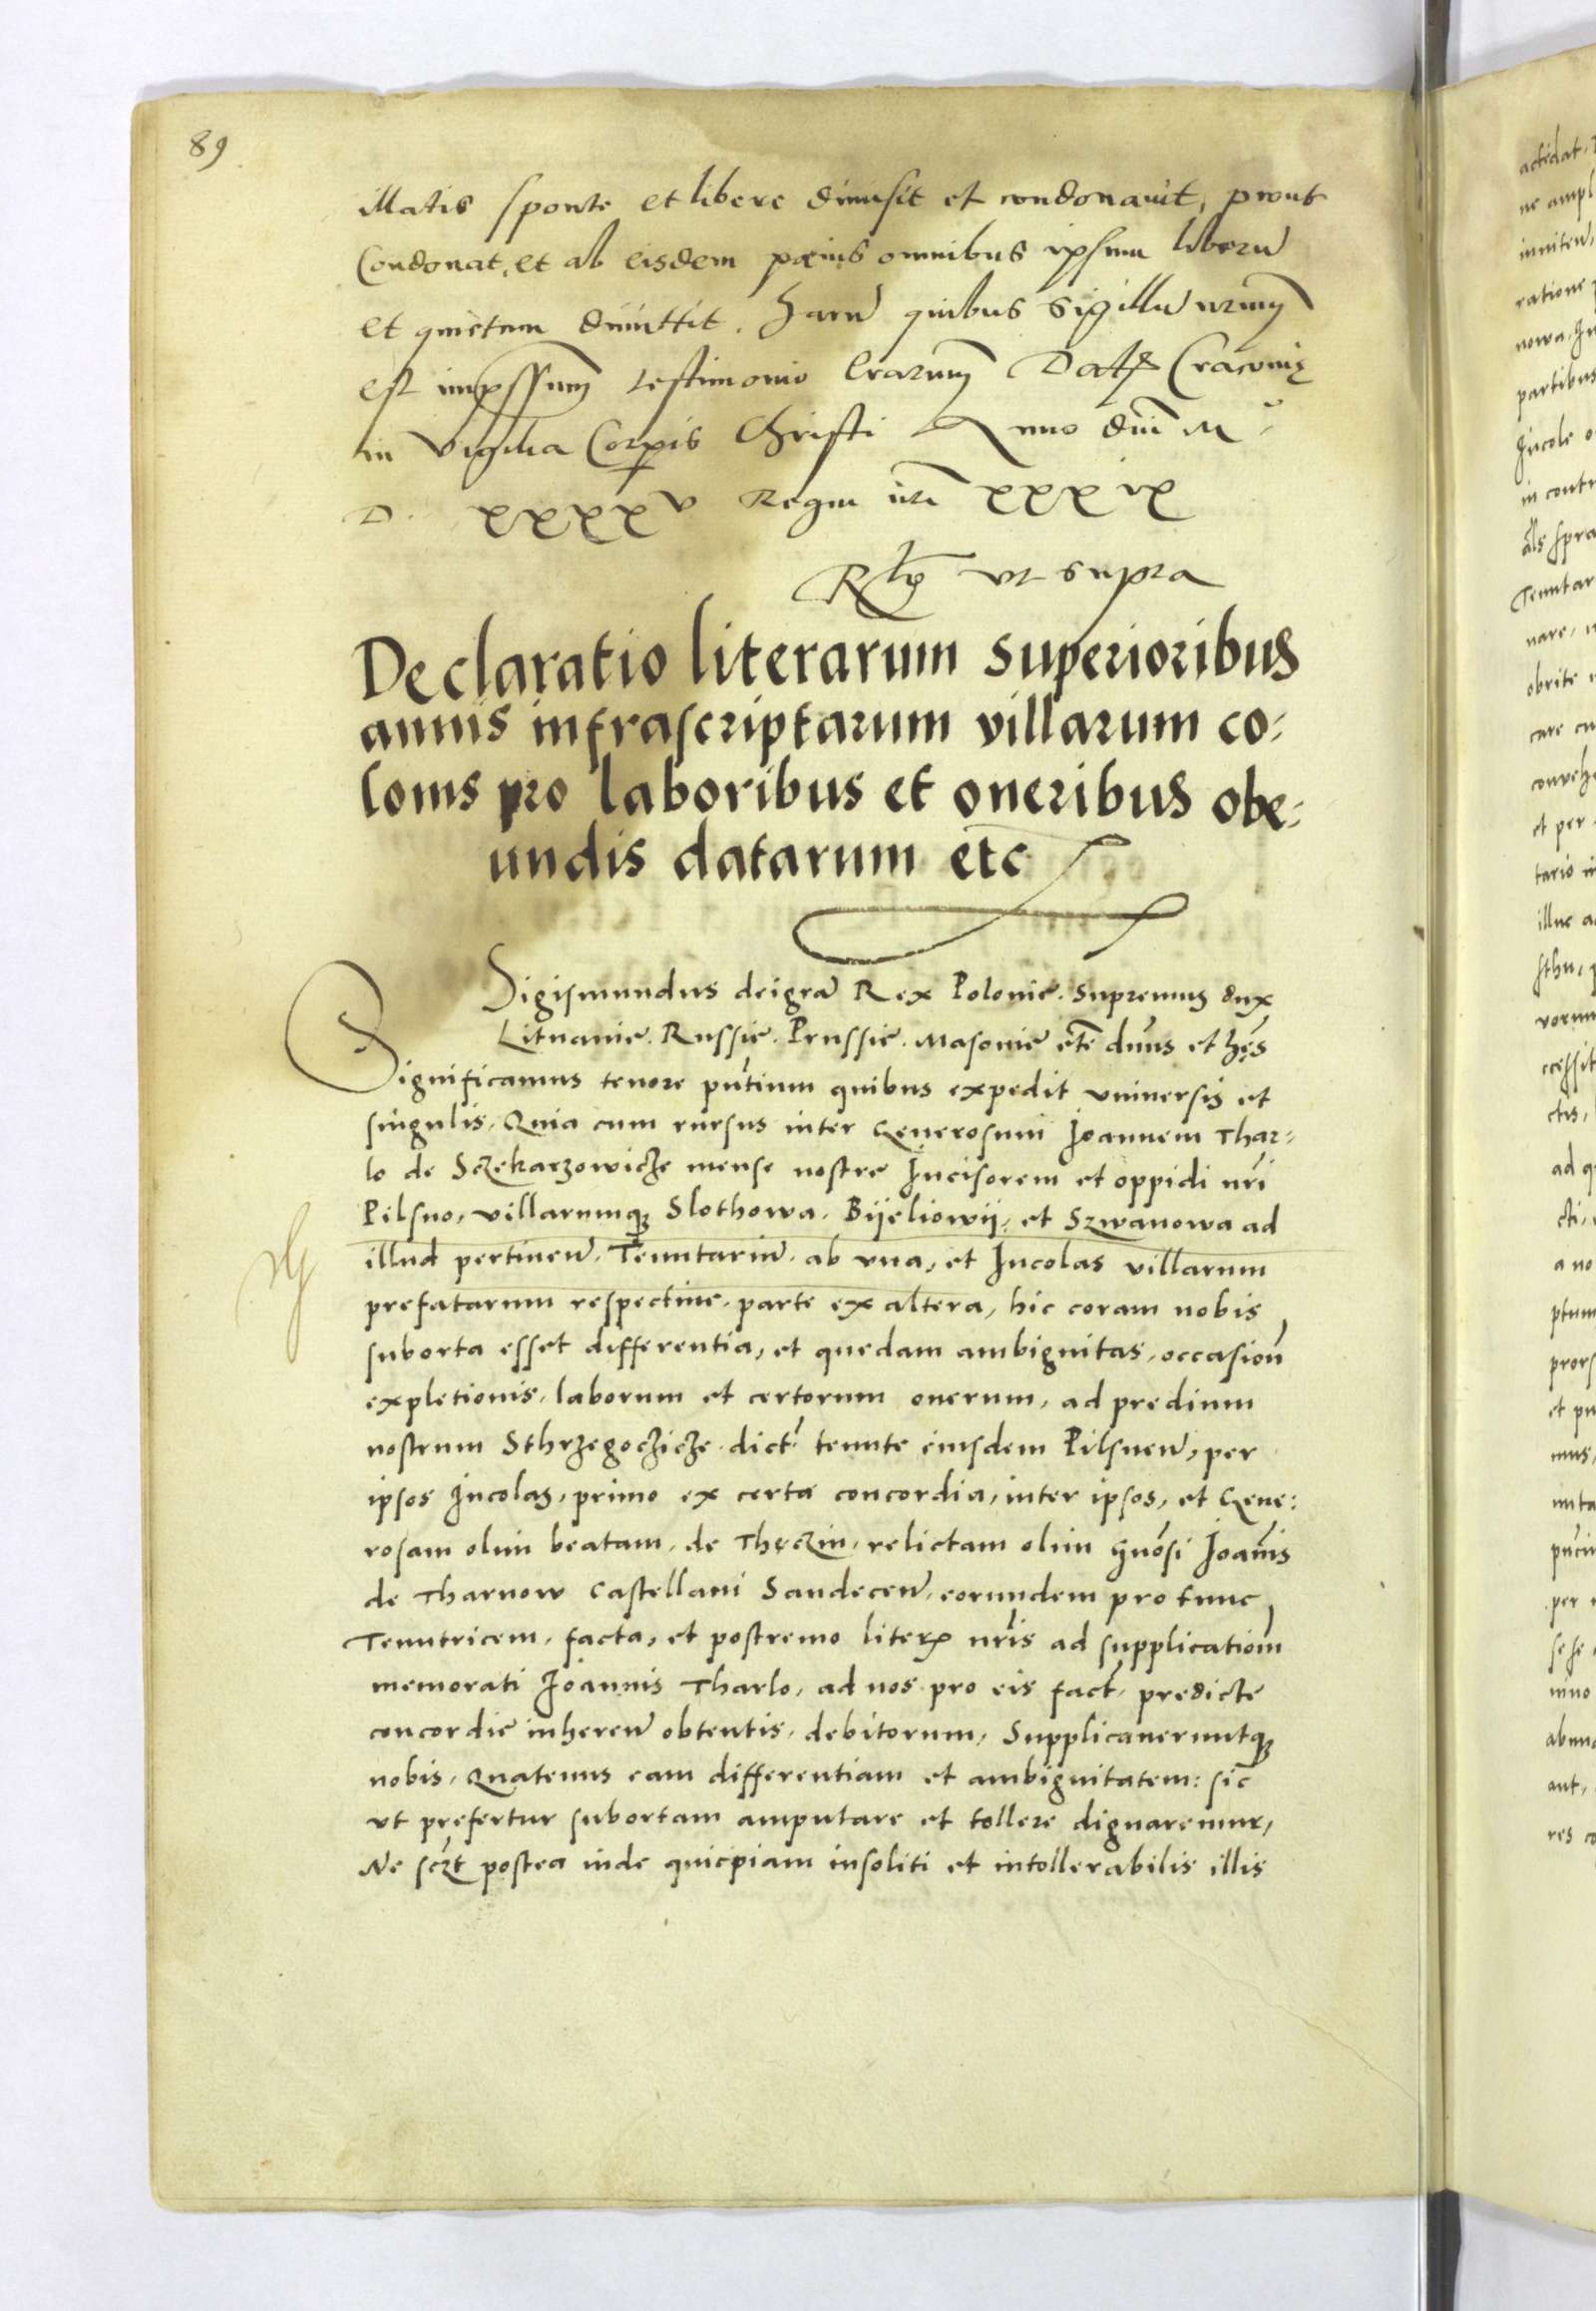 89
illatis sponte et libere dimisit et condonavit, prout
Condonat, et ab eisdem pœnis omnibus ipsum liberū
et quietum dimittit. Harū quibus Sigillū nrum
est imp̱ssum testimonio lrarum Datꝝ Cracovię
in vigilia Corp̱is Christi Anno dnī M
D. XXXXV Regni nrī XXXIX
Rlō ut supra
Declaratio literarum superioribus
annis infrascriptarum villarum co-
lonis pro laboribus et oneribus obe-
undis datarum etc
Sigismundus dei gra Rex Polonie. Supremus dux
Lituanie. Russie. Prussie. Masovie etc̄ dn̄us et hęs
Significamus tenore pn̄tium quibus expedit universis et
singulis. Quia cum rursus inter Generosum Joannem Thar-
lo de Sczekarzowicze mense nostre Incisorem et oppidi nrī
Pilsno, villarumqꝫ Slothowa. Bijeliowij, et Szwanowa ad
illud pertineñ. Tenutariū ab una, et Incolas villarum
prefatarum respective parte ex altera, hic coram nobis
suborta esset differentia, et quedam ambiguitas, occasioñ
expletionis, laborum et certorum onerum, ad predium
nostrum Sthrzegoczicze dict̄ tenute eiusdem Pilsneñ, per
ipsos Incolas, primo ex certa concordia, inter ipsos, et Gene-
rosam olim beatam de Thęczin, relictam olim gn̄osi Joan̄is
de Tharnow Castellani Sandeceñ, eorundem pro tunc
Tenutricem, facta, et postremo literꝭ nrīs ad supplicatiom̄
memorati Joannis Tharlo, ad nos pro eis fact̄ predicte
concordie inhereñ obtentis, debitorum, Supplicaveruntqꝫ
nobis, Quatenus eam differentiam et ambiguitatem: sic
ut prefertur subortam amputare et tollere dignaremur,
Ne sczt̄ postea inde quicpiam insoliti et intollerabilis illis